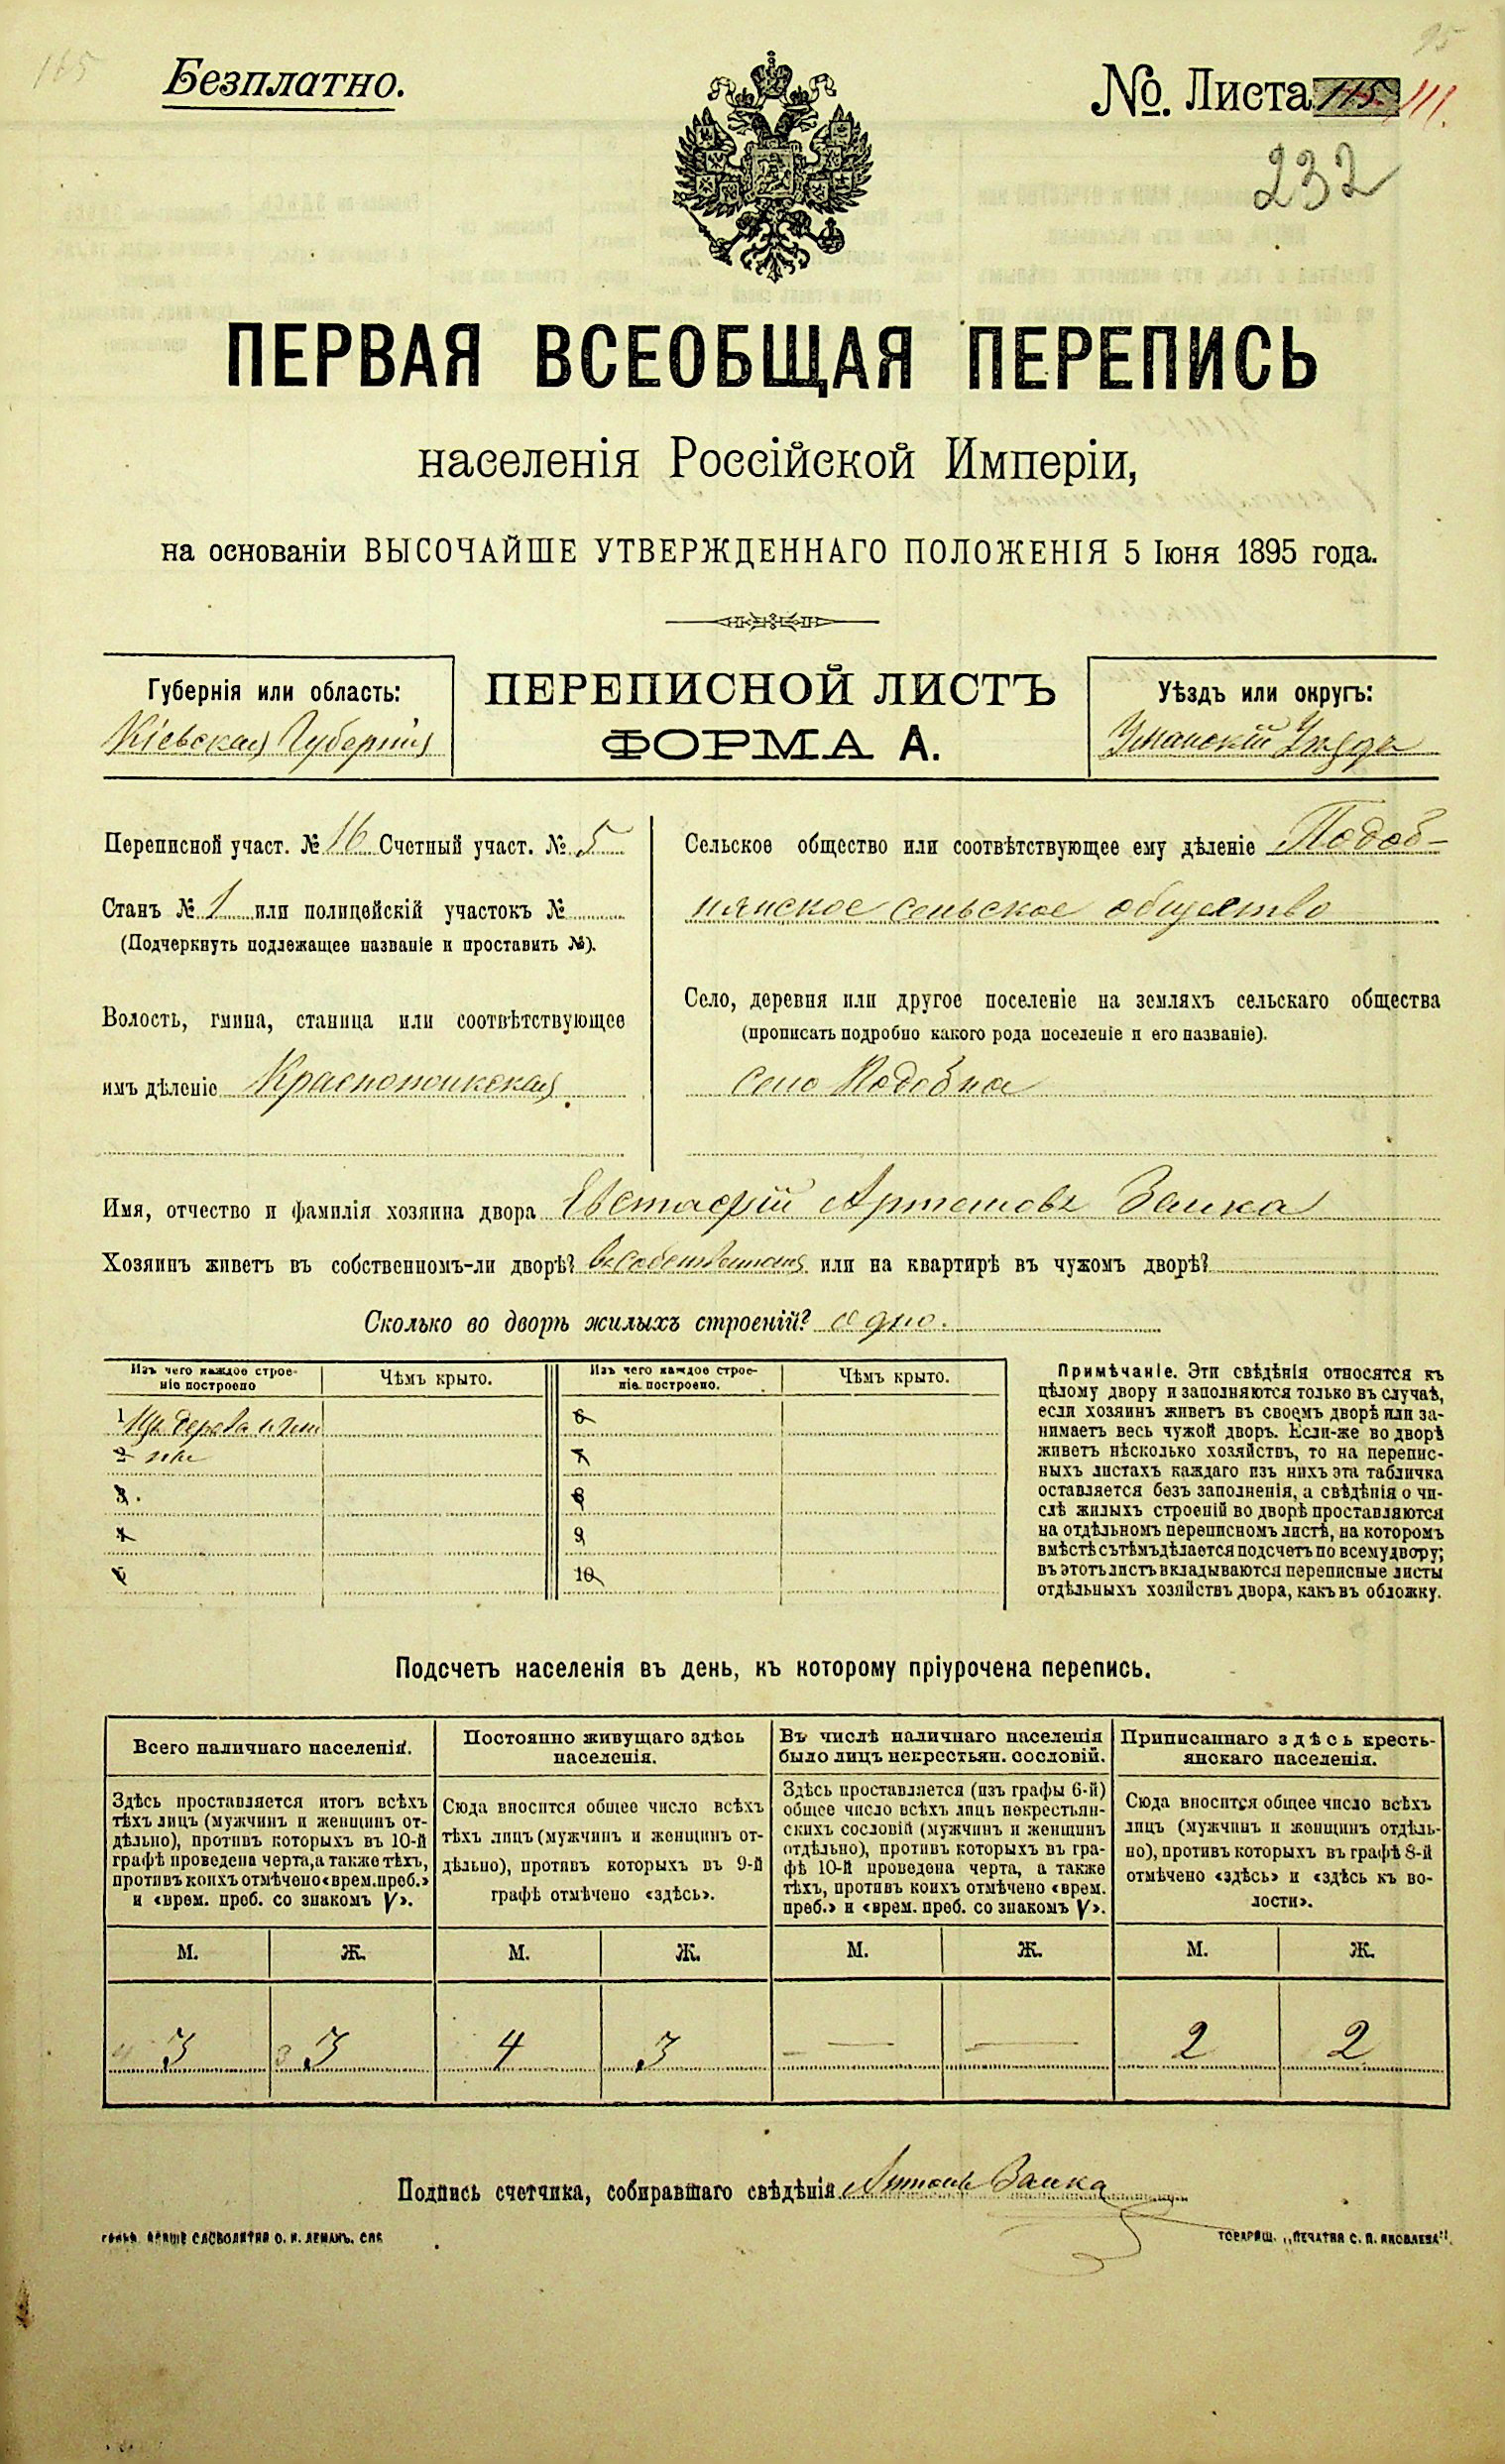 165
95
Безплатно.
№. Листа 115. 111.
232
ПЕРВАЯ ВСЕОБЩАЯ ПЕРЕПИСЬ
населенія Россійской Имперіи,
на основаніи ВЫСОЧАЙШЕ УТВЕРЖДЕННАГО ПОЛОЖЕНІЯ 5 Іюня 1895 года.
Губернія или область:
Кіевская Губернія
ПЕРЕПИСНОЙ ЛИСТЪ
ФОРМА А.
Уѣздъ или округъ:
Уманскій Уѣздъ
Переписной участ. № 16 Счетный участ. № 5
Станъ № 1 или полицейскій участокъ №
(Подчеркнуть подлежащее названіе и проставить №).
Волость, гмина, станица или соотвѣтствующее
имъ дѣленіе Краснополкская
Сельское общество или соотвѣтствующее ему дѣленіе Подоб-
нянское сельское общество
Село, деревня или другое поселеніе на земляхъ сельскаго общества
(прописать подробно какого рода поселеніе и его названіе).
село Подобна
Имя, отчество и фамилія хозяина двора Евстафій Артемовъ Заика
Хозяинъ живетъ въ собственномъ-ли дворѣ? или на квартирѣ въ чужомъ дворѣ?
Сколько во дворѣ жилыхъ строеній? одно.
Изъ чего каждое строе-
ніе построено
Чѣмъ крыто.
Изъ чего каждое строе-
ніе построено.
Чѣмъ крыто.
1 Изъ дерева и гли
2 ны
3
4
5
6
7
8
9
10
Примѣчаніе. Эти свѣдѣнія относятся къ
цѣлому двору и заполняются только въ случаѣ,
если хозяинъ живетъ въ своемъ дворѣ или за-
нимаетъ весь чужой дворъ. Если-же во дворѣ
живетъ нѣсколько хозяйствъ, то на перепис-
ныхъ листахъ каждаго изъ нихъ эта табличка
оставляется безъ заполненія, а свѣдѣнія о чи-
слѣ жилыхъ строеній во дворѣ проставляются
на отдѣльномъ переписномъ листѣ, на которомъ
вмѣстѣ съ тѣмъ дѣлается подсчетъ по всему двору;
въ этотъ листъ вкладываются переписные листы
отдѣльныхъ хозяйствъ двора, какъ въ обложку.
Подсчетъ населенія въ день, къ которому пріурочена перепись.
Всего наличнаго населенія.
Здѣсь проставляется итогъ всѣхъ
тѣхъ лицъ (мужчинъ и женщинъ от-
дѣльно), противъ которыхъ въ 10-й
графѣ проведена черта, а также тѣхъ,
противъ коихъ отмѣчено «врем. преб.»
и «врем. преб. со знакомъ V».
М. Ж.
4 3 3 3
Постоянно живущаго здѣсь
населенія.
Сюда вносится общее число всѣхъ
тѣхъ лицъ (мужчинъ и женщинъ от-
дѣльно), противъ которыхъ въ 9-й
графѣ отмѣчено «здѣсь».
М. Ж.
4 3
Въ числѣ наличнаго населенія
было лицъ некрестьян. сословій.
Здѣсь проставляется (изъ графы 6-й)
общее число всѣхъ лицъ некрестьян-
скихъ сословій (мужчинъ и женщинъ
отдѣльно), противъ которыхъ въ гра-
фѣ 10-й проведена черта, а также
тѣхъ, противъ коихъ отмѣчено «врем.
преб.» и «врем. преб. со знакомъ V».
М. Ж.
— —
Приписаннаго здѣсь кресть-
янскаго населенія.
Сюда вносится общее число всѣхъ
лицъ (мужчинъ и женщинъ отдѣль-
но), противъ которыхъ въ графѣ 8-й
отмѣчено «здѣсь» и «здѣсь къ во-
лости».
М. Ж.
2 2
Подпись счетчика, собиравшаго свѣдѣнія Антонъ Заика
СЛОВОЛИТНЯ О. И. ЛЕМАНЪ. СПБ
ТОВАРИЩ. „ПЕЧАТНЯ С. П. ЯКОВЛЕВА".